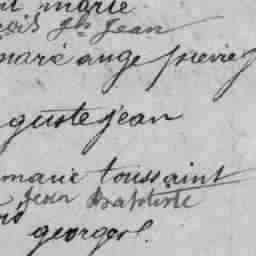 marie
çois Jh Jean
marie ange pierre
guste jean
marie toussaint
Jean Baptiste
georges